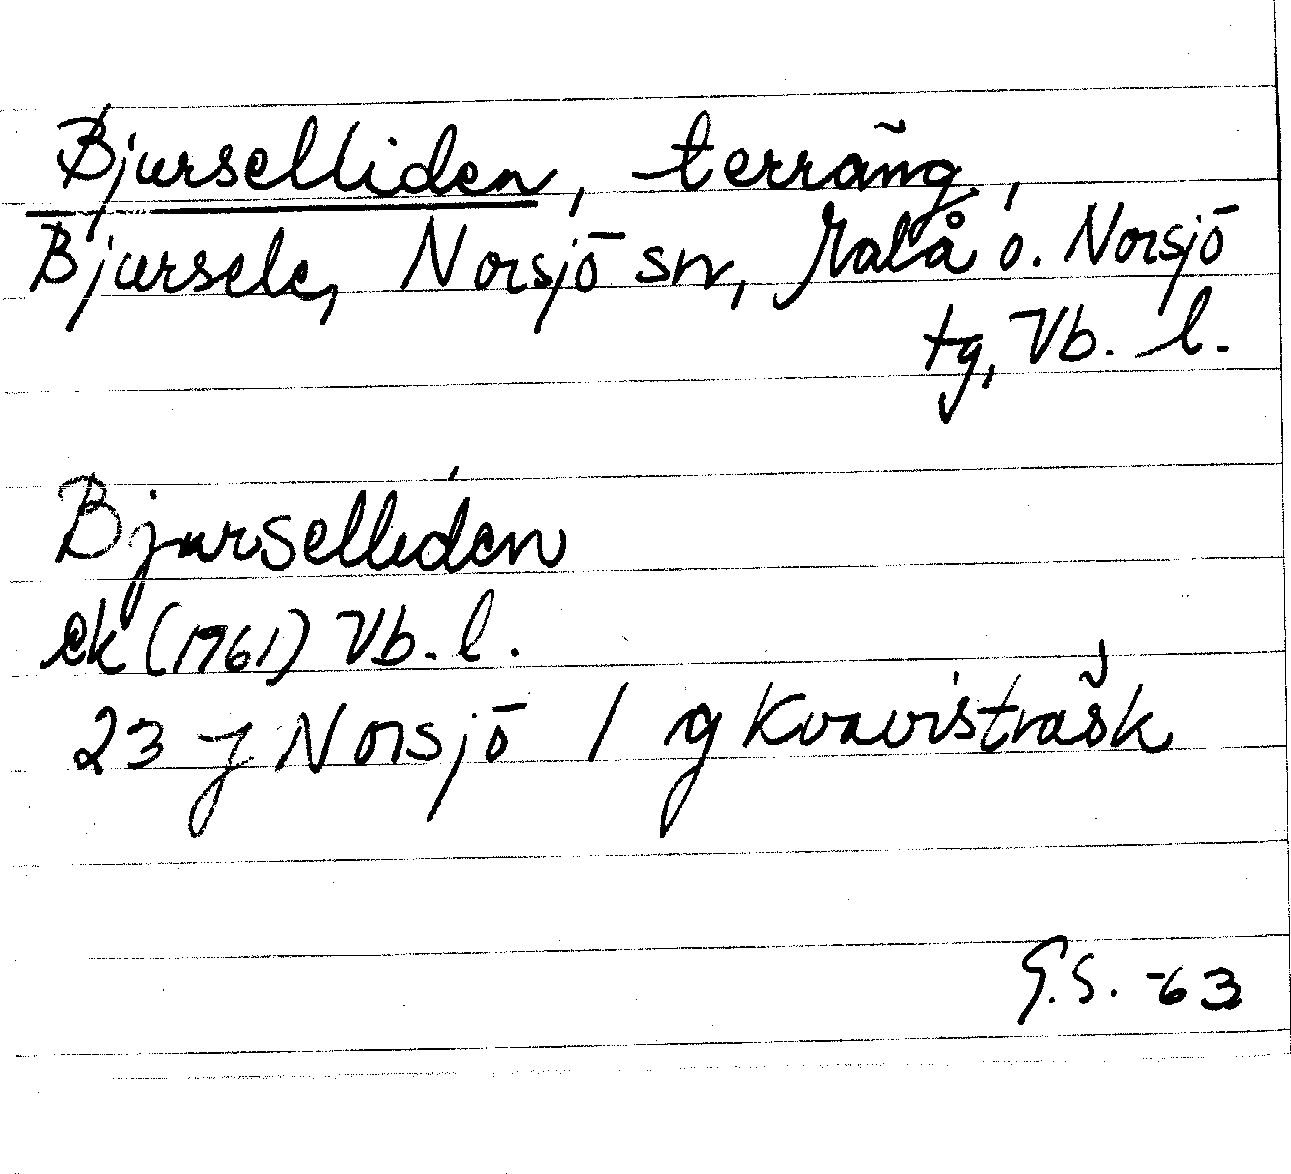 Bjurselliden, terräng,
Bjursele, Norsjö sn, Malå o. Norsjö
tg, Vb. l.
Bjurselliden
ek (1961) Vb. l.
23 J Norsjö / g Kvavisträsk
G.S. -63